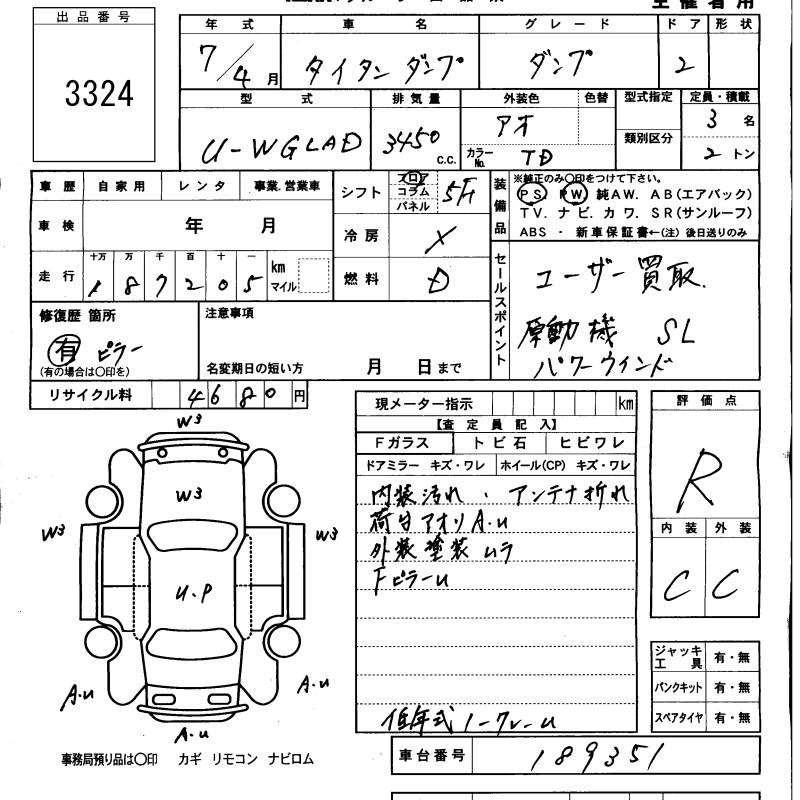 出品番号
3324
年式 車名 グレード ドア 形状
7/4月 タイタン ダンプ ダンプ 2
型式 排気量 外装色 色替 型式指定 定員・積載
U-WGLAD 3450 C.C. アオ 類別区分 3名
カラーNo. TD 2トン
車歴 自家用 レンタ 事業.営業車 シフト フロア コラム パネル 5F
装備品 ※純正のみ〇印をつけて下さい。
PS. PW 純AW. AB(エアバック)
TV. ナビ. カワ. SR(サンルーフ)
ABS ・ 新車保証書←(注) 後日送りのみ
車検 年 月 冷房 ×
走行 十万 万 千 百 十 一
187205 km マイル 燃料 D
セールスポイント
ユーザー買取.
原動機 SL
パワーウインド
修復歴 箇所 注意事項
有 ピラー
(有の場合は〇印を) 名変期日の短い方 月 日まで
リサイクル料 4680円
現メーター指示 km
【査定員記入】
Fガラス トビ石 ヒビワレ
ドアミラー キズ・ワレ ホイール(CP) キズ・ワレ
内装汚れ . アンテナ折れ
荷台アオリA.U
外装塗装ムラ
FピラーU
評価点
R
内装 外装
C C
W3
W3
W3 W3
U.P
A.U A.U
A.U
ジャッキ 工具 有・無
パンクキット 有・無
スペアタイヤ 有・無
事務局預り品は〇印 カギ リモコン ナビロム
車台番号 189351